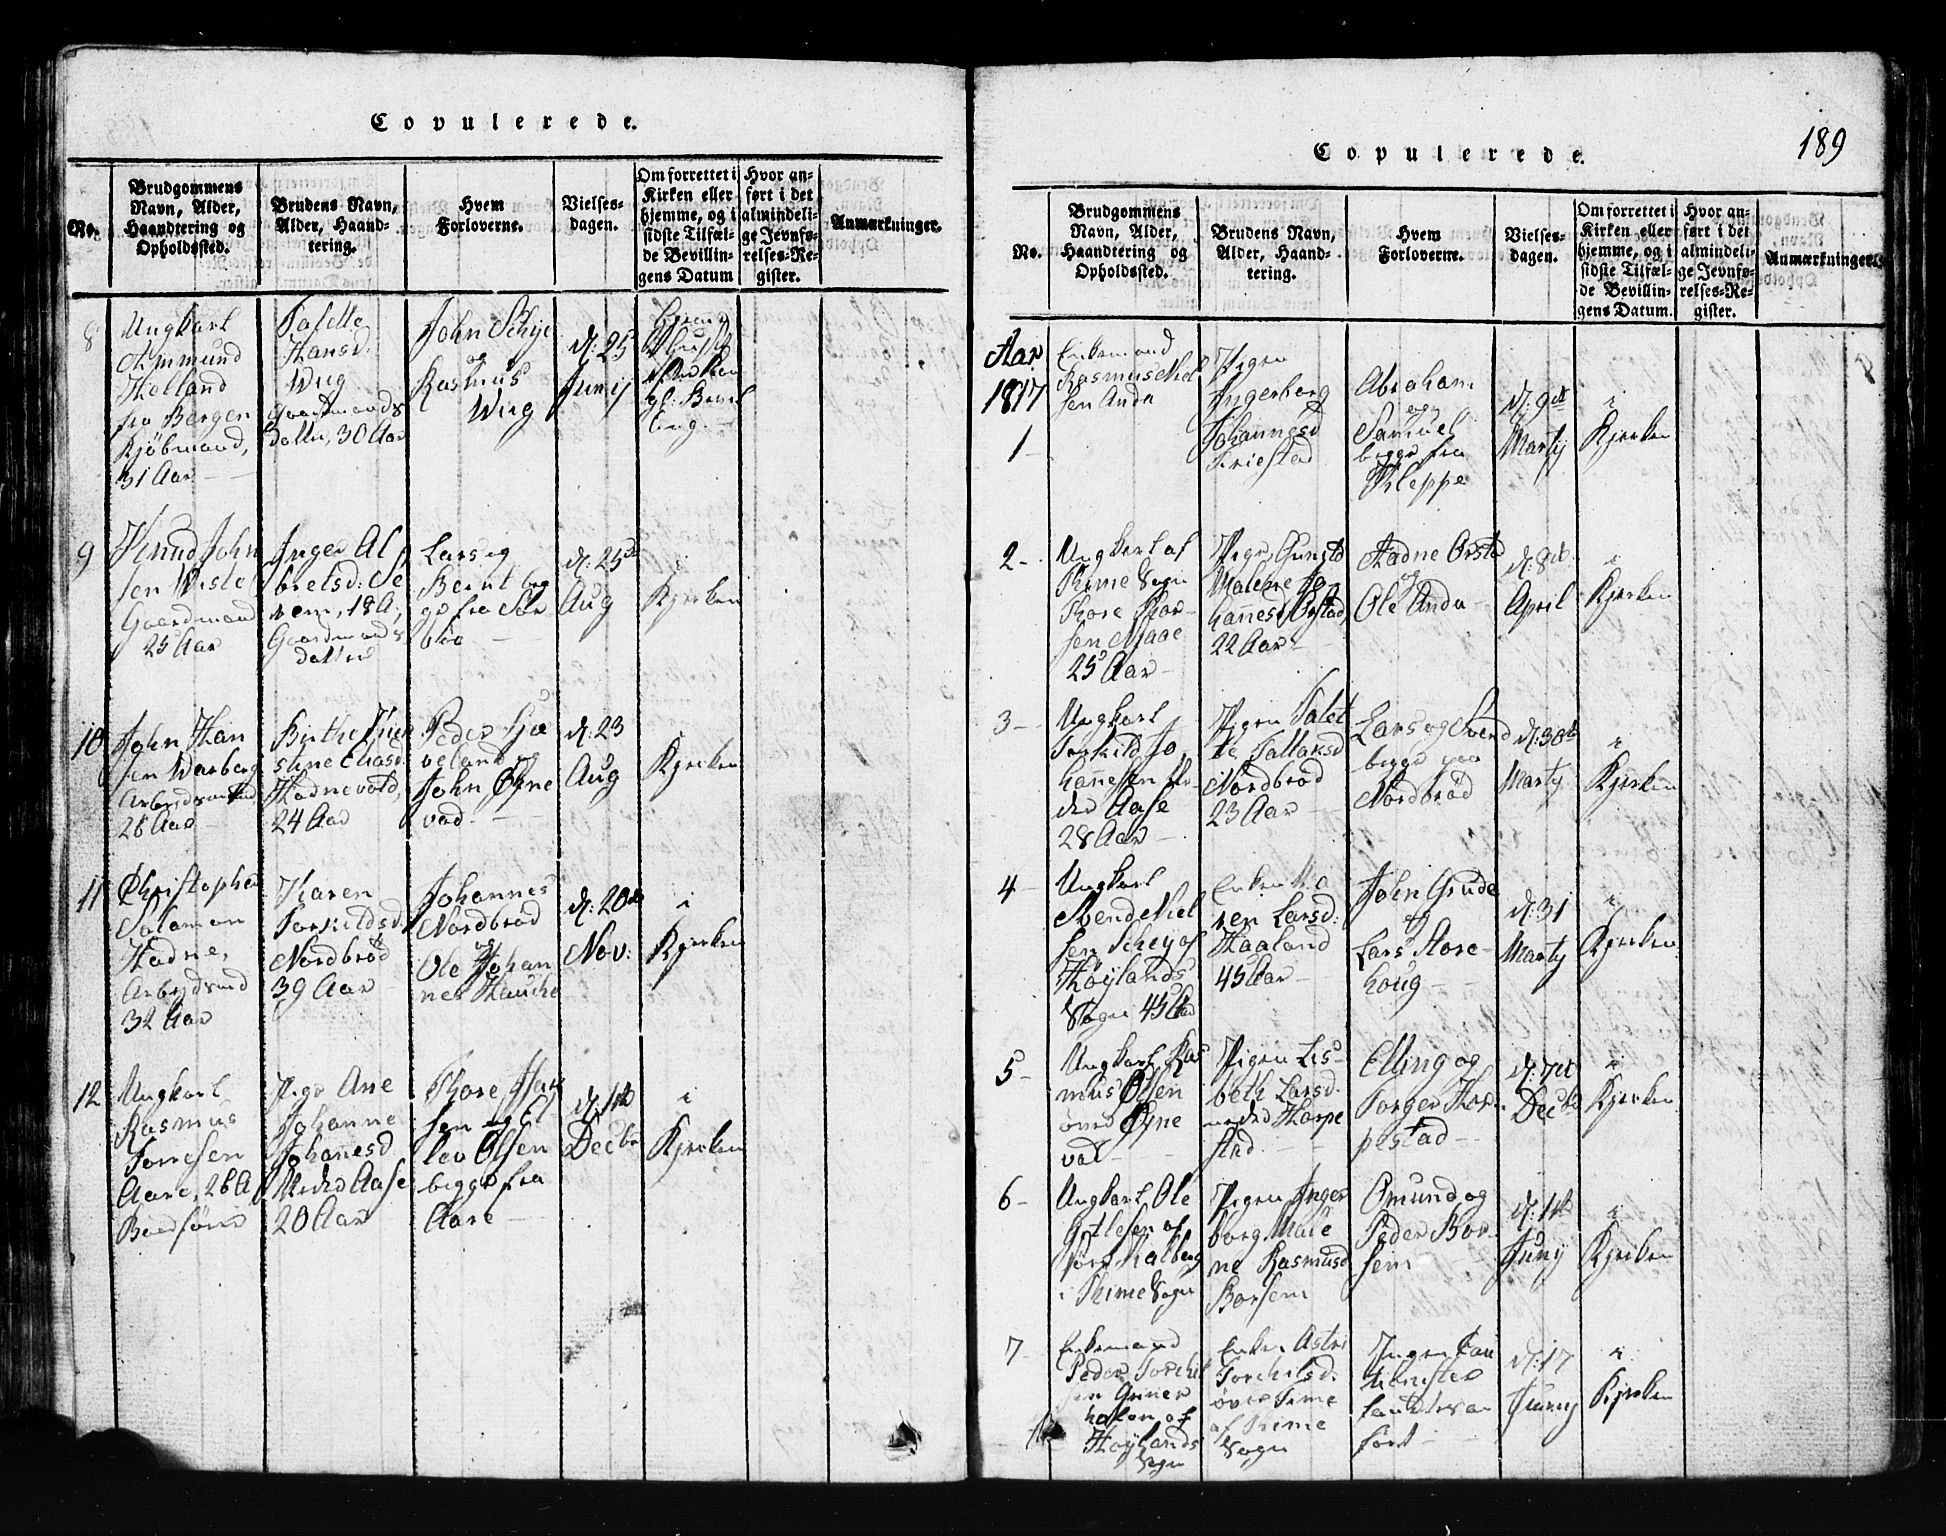 Copulerede.
No.
Brudgommens
Navn, Alder,
Haandtering og
Opholdssted.
Brudens Navn,
Alder, Haand-
tering.
Hvem
Forloverne.
Vielses-
dagen.
Om forrettet i
Kirken eller
hjemme, og i
sidste Tilfæl-
de Bevillin-
gens Datum
Hvor an-
ført i det
almindeli-
ge Jevnfø-
relses-Re-
gister.
Anmærkninger.
8
Ungkarl
Ommund
Holland
fra Bergen
Kjøbmand,
31 Aar
Talette
Hansd.
Wiig
Gaardmands
datter, 30 Aar
John Schije
og
Rasmus
Wiig
d: 25
Junij
9
Knud John
sen Viste
Gaardmand
25 Aar
Inger Al
bretsd: Se
rem, 18 A,
Gaardmands
datter
Lars og
Bernt beg
ge fra Sør
bøe
d: 25de
Aug
i
Kjerken
10
John Han
sen Warberg
Arbejdsmand
26 Aar
Birthe
stine
Hadnevold,
24 Aar
Peder Hjæ
veland
John Øyne
vad.
d: 23
Aug
i
Kjerken
11
Christopher
Salamon
Hadne,
Arbejdsmd
32 Aar
Karen
Torkildsd.
Nordbrød
39 Aar
Johannes
Nordbrød
og
Ole Johan
nes Hauche
d: 20de
Nov:
i
Kjerken
12
Ungkarl
Rasmus
Tonesen
Aare, 26 A
Pige Ane
Johanne
Johannesd
Neder Aase
20 Aar
Thore
sen og El
lev Olsen
begge fra
Aare
d: 1te
Decbr
i
Kjerken
Copulerede.
189
No.
Brudgommens
Navn, Alder,
Haandtering og
Opholdssted.
Brudens Navn,
Alder, Haand-
tering.
Hvem
Forloverne.
Vielses-
dagen.
Om forrettet i
Kirken eller
hjemme, og i
sidste Tilfæl-
de Bevillin-
gens Datum.
Hvor an-
ført i det
almindeli-
ge Jevnfø-
relses-Re-
gister.
Anmærkninger.
Aar
1817
1
Enkemand
Rasmus Niel
sen Anda
Pigen
Ingerborg
Johannesd
Friestad
Abraham
og
Samuel
begge fra
Kleppe
d: 9de
Martij
i
Kjerken
2
Ungkarl af
Thime Sogn
Thore Thor-
sen Njaae
25 Aar
Pige Gunild
Malene Jo
hannesd Orstad,
22 Aar
Hadne Orstad
og
Ole Anda
d: 8de
April
i
Kjerken
3
Ungkarl
Torkild Jo
hannesen Ne
der Aase
28 Aar
Pigen Talet
te Tallaksd
Nordbrød
23 Aar
Lars og Svend
begge paa
Nordbrød
d: 30te
Marty
i
Kjerken
4
Ungkarl
Svend Niel
sen Scheij af
Høylands
Sogn 45 Aar
Enken Ka
ren Larsd:
Haaland
45 Aar
John Grude
og
Lars Store-
houg
d: 31
Martij
i
Kjerken
5
Ungkarl Ras
mus Olsen
over Øyne
vad
Pigen Lis
beth Larsd.
neder Horpe
stad
Elling og
Torger Hor-
pestad
d: 7de
Decbr
i
Kjerken
6
Ungkarl Ole
af
Kalberg
i Thime Sogn
Pigen Inger
borg Male
ne Rasmusd
Borsem
Omund og
Peder Bor
sem
d: 1te
Juny
i
Kjerken
7
Enkemand
Peder Torchil
sen Gruner
af
Høylands
Sogn
Enken Astri
Torchilsd.
øvre Time
af Thime
Sogn
Ingen Cau
tionister
fandtes an
ført
d: 17
Juny
i
Kjerken